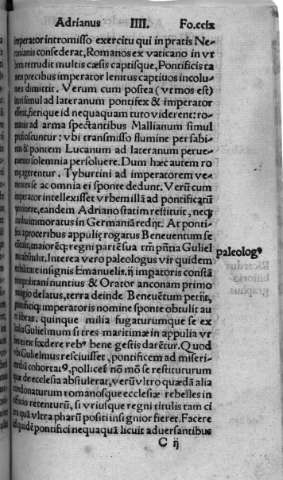 Adrianus IIII. Fo.ccix
imperator intromisso exercitu qui in pratis Ne
ronianis consederat, Romanos ex vaticano in vr
bem retrudit multis cæsis captisque, Pontificis ta
men precibus imperator lenitus captiuos incolu
mes dimittit. Verum cum postea (vt mos est)
simul ad lateranum pontifex & imperator
fierique id nequaquam tuto viderent: ro
manis ad arma spectantibus Mallianum simul
proficiscuntur: vbi transmisso flumine per sabi
nos & pontem Lucanum ad lateranum perue
solemnia persoluere. Dum hæc autem ro
agerentur. Tyburtini ad imperatorem ve
nientes se ac omnia ei sponte dedunt. Verū cum
imperator intellexisset vrbem illā ad pontificatū
pertinere, eandem Adriano statim restituit, neq;
multo immoratus in Germaniā redijt. At ponti
fex a proceribus appulię rogatus Beneuentum se
maiorēq; regni partē sua tm̄ pn̄tia Guliel
mo abstulit. Interea vero paleologus vir quidem
paleolog⁹
ac insignis Emanuelis.ij imgatoris constā
tinopolitani nuntius & Orator anconam primo
delatus, terra deinde Beneuētum petijt,
pontificiq; imperatoris nomine sponte obtulit au
ri libras. quinque milia fugaturumque se ex
Gulielmum si tres maritimæ in appulia vr
fœdere reb⁹ bene gestis darētur. Quod
Gulielmus resciuisset, pontificem ad miseri
cordiā cohortat⁹, pollicet̄ nō mō se restituturum
que de ecclesia abstulerat, verū vltro quædā alia
donaturum romanosque ecclesiæ rebelles in
officio retenturū, si vtriusque regni titulis tam ci
tra quā vltra pharū positi insignior fieret. Facere
id quidē pontifici nequaquā licuit aduersantibus
C ij